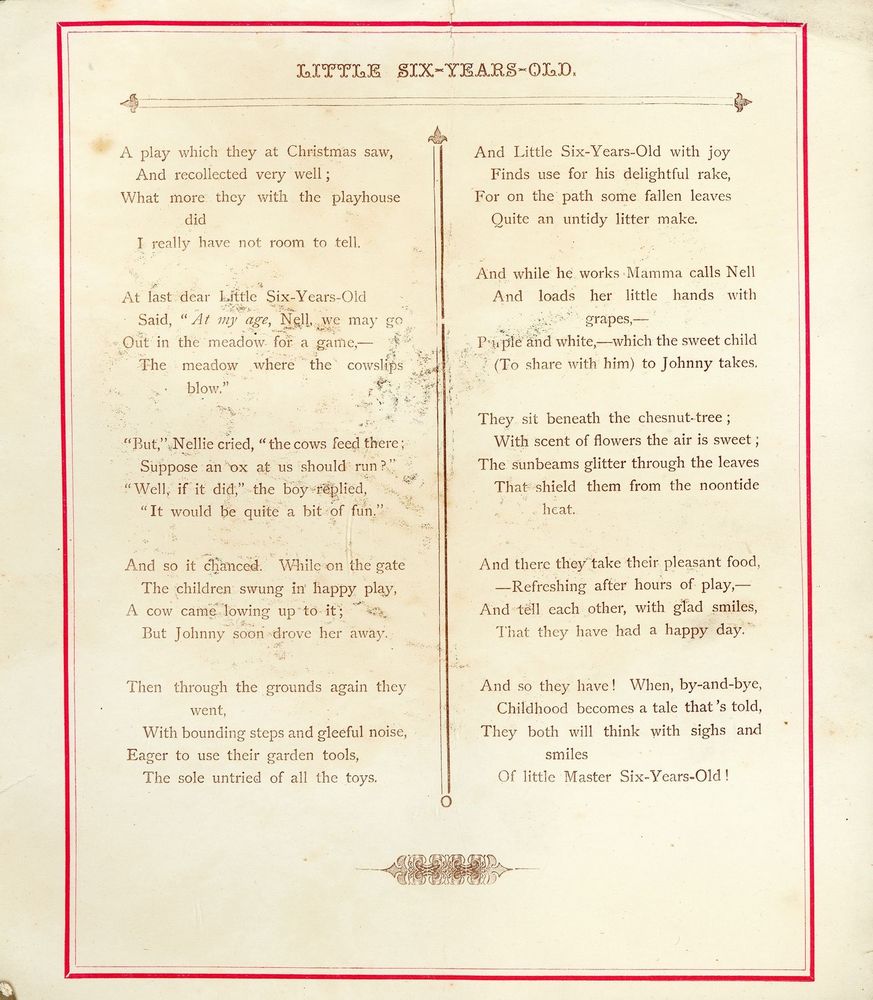 LITTLE SIX-YEARS-OLD.
A play which they at Christmas saw,
And recollected very well;
What more they with the playhouse
did
I really have not room to tell.
At last dear Little Six-Years-Old
Said, "At my age, Nell, we may go
Out in the meadow for a game,—
The meadow where the cowslips
blow."
"But," Nellie cried, "the cows feed there;
Suppose an ox at us should run?"
"Well, if it did," the boy replied,
"It would be quite a bit of fun."
And so it chanced. While on the gate
The children swung in happy play,
A cow came lowing up to it;
But Johnny soon drove her away.
Then through the grounds again they
went,
With bounding steps and gleeful noise,
Eager to use their garden tools,
The sole untried of all the toys.
And Little Six-Years-Old with joy
Finds use for his delightful rake,
For on the path some fallen leaves
Quite an untidy litter make.
And while he works Mamma calls Nell
And loads her little hands with
grapes,—
Purple and white,—which the sweet child
(To share with him) to Johnny takes.
They sit beneath the chesnut-tree;
With scent of flowers the air is sweet;
The sunbeams glitter through the leaves
That shield them from the noontide
heat.
And there they take their pleasant food,
—Refreshing after hours of play,—
And tell each other, with glad smiles,
That they have had a happy day.
And so they have! When, by-and-bye,
Childhood becomes a tale that's told,
They both will think with sighs and
smiles
Of little Master Six-Years-Old!